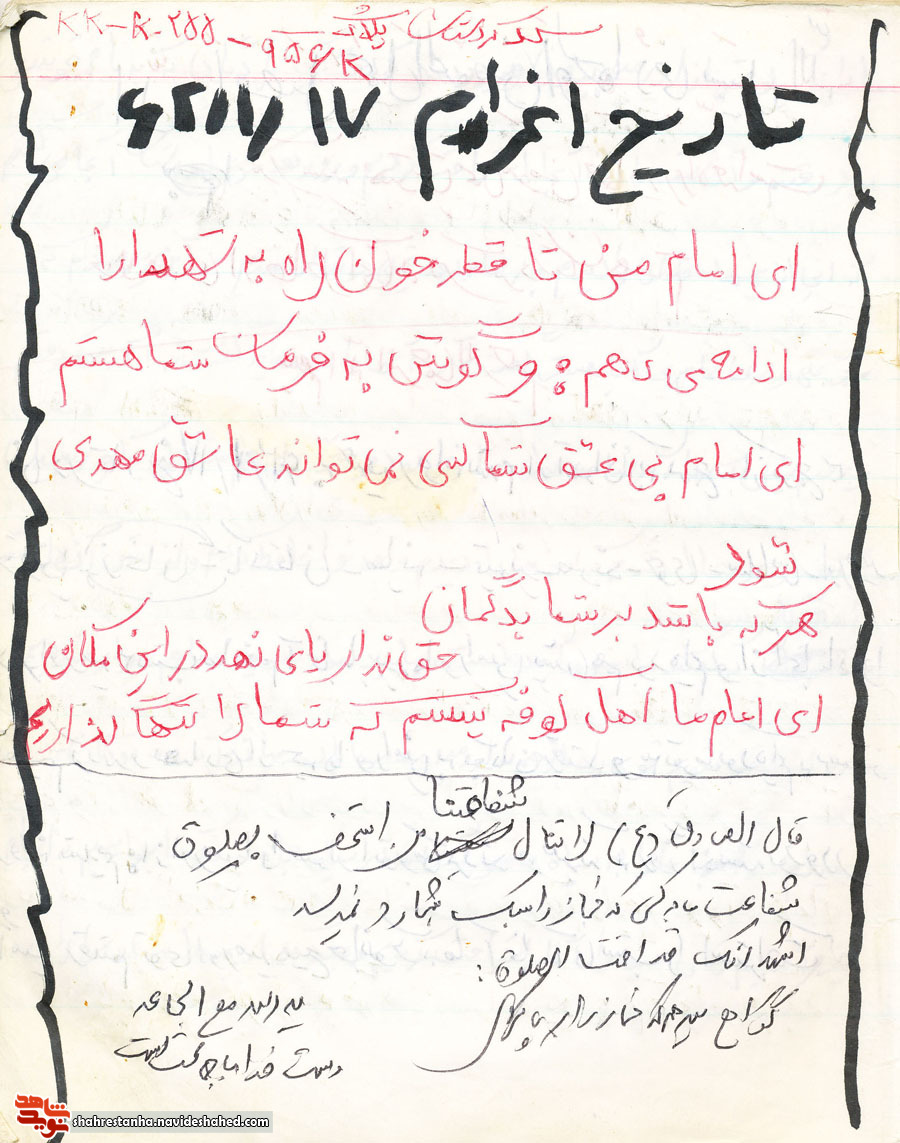 سنندج کردستان پلاک
KK-R-255 - 956K
تاریخ اعزام ۶۲/۱۱/۱۷
ای امام من تا قطر خون راه به شهدا را
ادامه می دهم و گویش به فرمان شما هستم
ای امام بی عشق شما کسی نمی تواند عاشق مهدی
شود
هر که باشد بر شما بدگمان
حق ندار پای نهد در این مکان
ای امام ما اهل کوفه نیستیم که شما را تنها بذاریم
شفاعتنا
قال الصادق (ع) لا تنال من استخف بصلوة
شفاعت ما به کسی که نماز را سبک بشمارد نمیرسد
اشهد انک قد اقمت الصلوة :
گواهی میدهم که نماز را به پا
ید الله مع الجماعه
دست خدا با جماعت است
نوید شاهد
shahrestanha.navideshahed.com